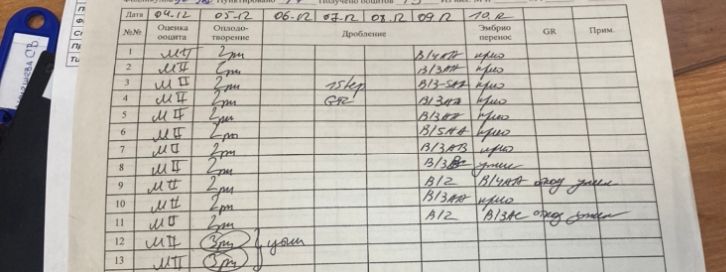 Дата 04.12 05.12 06.12 07.12 08.12 09.12 10.12
№№ Оценка ооцита Оплодотворение Дробление Эмбрио перенос GR Прим.
1 MII 2pn B/4AA крио
2 MII 2pn B/3AA крио
3 MII 2pn 1step B/3-5AA крио
4 MII 2pn B/3AA крио
5 MII 2pn B/3AA крио
6 MII 2pn B/5AA крио
7 MII 2pn B/3AB крио
8 MII 2pn
9 MII 2pn B/2 B/4AA
10 MII 2pn B/3AA крио
11 MII 2pn B/2 B/3AC
12 MII 3pn
13 MII 3pn